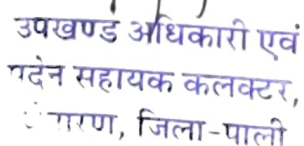 उपखण्ड अधिकारी एवं
पदेन सहायक कलक्टर,
जिला-पाली